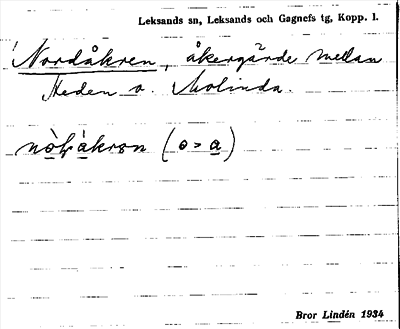 Leksands sn, Leksands och Gagnefs tg, Kopp. l.
Nordåkren, åkergärde mellan
Heden o. Molinda.
(o > a)
Bror Lindén 1934